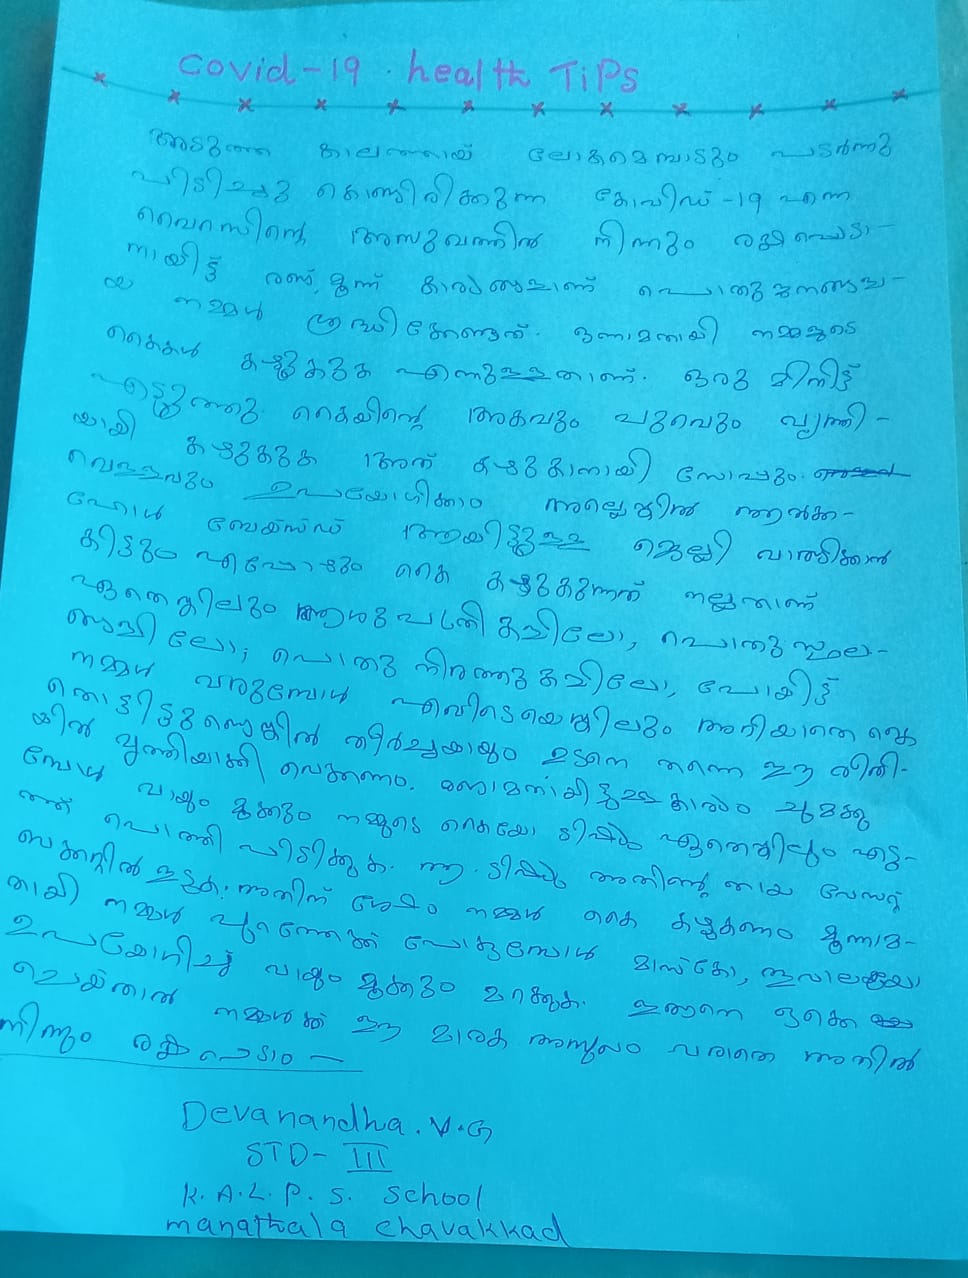 Covid-19 health TiPS
അടുത്ത കാലത്തായ് ലോകമെമ്പാടും പടർന്നു
പിടിച്ചു കൊണ്ടിരിക്കുന്ന കോവിഡ്-19 എന്ന
വൈറസിന്റെ അസുഖത്തിൽ നിന്നും രക്ഷപ്പെടാ-
നായിട്ട് രണ്ട്, മൂന്ന് കാര്യങ്ങളാണ് പൊതുജനങ്ങളാ-
യ നമ്മൾ ശ്രദ്ധിക്കേണ്ടത്. ഒന്നാമതായി നമ്മളുടെ
കൈകൾ കഴുകുക എന്നുള്ളതാണ്. ഒരു മിനിട്ട്
എടുത്തു കൈയിന്റെ അകവും പുറവും വൃത്തി-
യായി കഴുകുക അത് കഴുകാനായി സോപ്പും
വെള്ളവും ഉപയോഗിക്കാം അല്ലെങ്കിൽ ആൽക്ക-
ഹോൾ ബേയ്സ്ഡ് ആയിട്ടുള്ള ജെല്ലി വാങ്ങിക്കാൻ
കിട്ടും എപ്പോഴും കൈ കഴുകുന്നത് നല്ലതാണ്
ഏതെങ്കിലും ആശുപത്രികളിലോ, പൊതുസ്ഥല-
ങ്ങളിലോ, പൊതു നിരത്തുകളിലോ, പോയിട്ട്
നമ്മൾ വരുമ്പോൾ എവിടെയെങ്കിലും അറിയാതെ കൈ
തൊട്ടിട്ടുണ്ടെങ്കിൽ തീർച്ചയായും ഉടനെ തന്നെ ഈ രീതി-
യിൽ വൃത്തിയാക്കി വെക്കണം. രണ്ടാമതായിട്ടുള്ള കാര്യം ചുമക്കു
മ്പോൾ വായും മൂക്കും നമ്മുടെ കൈയോ ടിഷ്യു ഏതെങ്കിലും എടു-
ത്ത് പൊത്തി പിടിക്കുക. ആ ടിഷ്യു അതിന്റെതായ വേസ്റ്റ്
ബക്കറ്റിൽ ഇടുക. അതിന് ശേഷം നമ്മൾ കൈ കഴുകണം മൂന്നാമ-
തായി നമ്മൾ പുറത്തേക്ക് പോകുമ്പോൾ മാസ്കോ, തൂവാലയോ
ഉപയോഗിച്ച് വായും മൂക്കും മറക്കുക. ഇങ്ങനെ ഒക്കെ
ചെയ്താൽ നമ്മൾക്ക് ഈ മാരക അസുഖം വരാതെ അതിൽ
നിന്നും രക്ഷപെടാം -
Devanandha. V.G
STD- III
K.A.L.P.S. School
manathala chavakkad